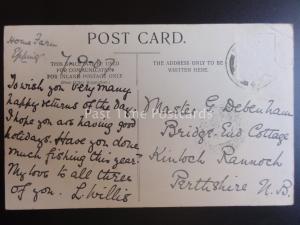 POST CARD.
Home Farm
Epping
THIS SPACE MAY BE USED
FOR COMMUNICATION
FOR INLAND POSTAGE ONLY
THE ADDRESS ONLY TO BE
WRITTEN HERE.
To wish you very many
happy returns of the day.
I hope you are having good
holidays. Have you done
much fishing this year.
My love to all three
of you. L. Willis
Master G. Debenham
Bridge-End Cottage
Kinloch Rannoch
Perthshire N.B.
Past Time Postcards